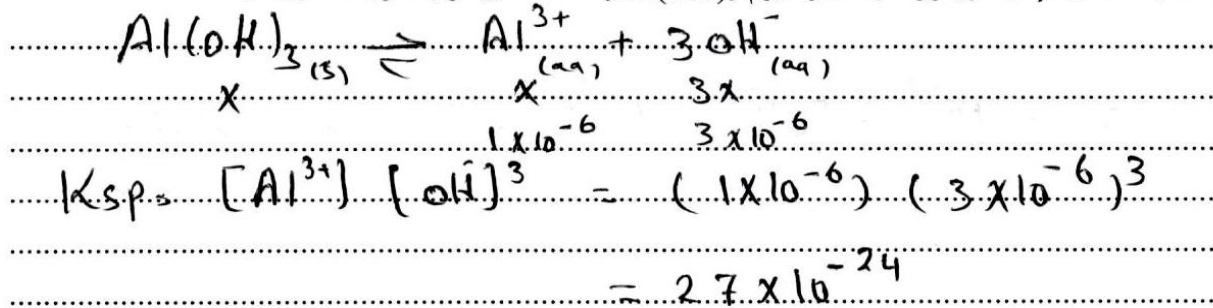 Al(OH)₃(s) ⇌ Al³⁺(aq) + 3OH⁻(aq)
x x 3x
1x10⁻⁶ 3x10⁻⁶
Ksp = [Al³⁺] [OH⁻]³ = (1x10⁻⁶) (3x10⁻⁶)³
= 27 x 10⁻²⁴